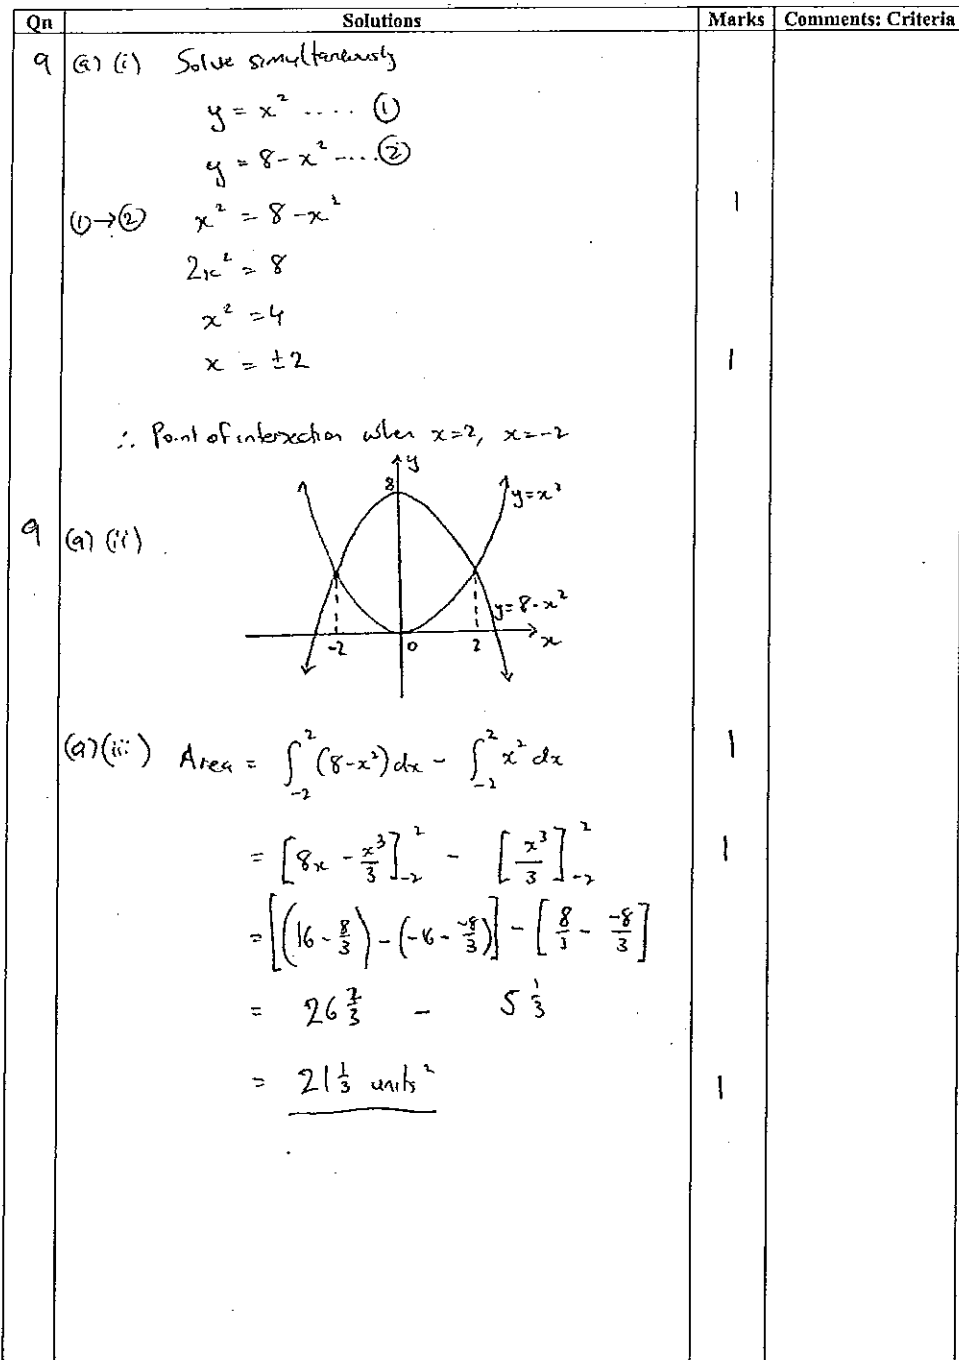 Qn Solutions Marks Comments: Criteria
9 (a) (i) Solve simultaneously
y = x² .... ①
y = 8 - x² .... ②
①→② x² = 8 - x² 1
2x² = 8
x² = 4
x = ±2 1
∴ Point of intersection when x=2, x=-2
y
8
y=x²
9 (a) (ii)
y=8-x²
-2 0 2 x
(a) (iii) Area = ∫₋₂² (8-x²) dx - ∫₋₂² x² dx 1
= [8x - x³/3]₋₂² - [x³/3]₋₂² 1
= [(16 - 8/3) - (-16 - -8/3)] - [8/3 - -8/3]
= 26 2/3 - 5 1/3
= 21 1/3 units² 1